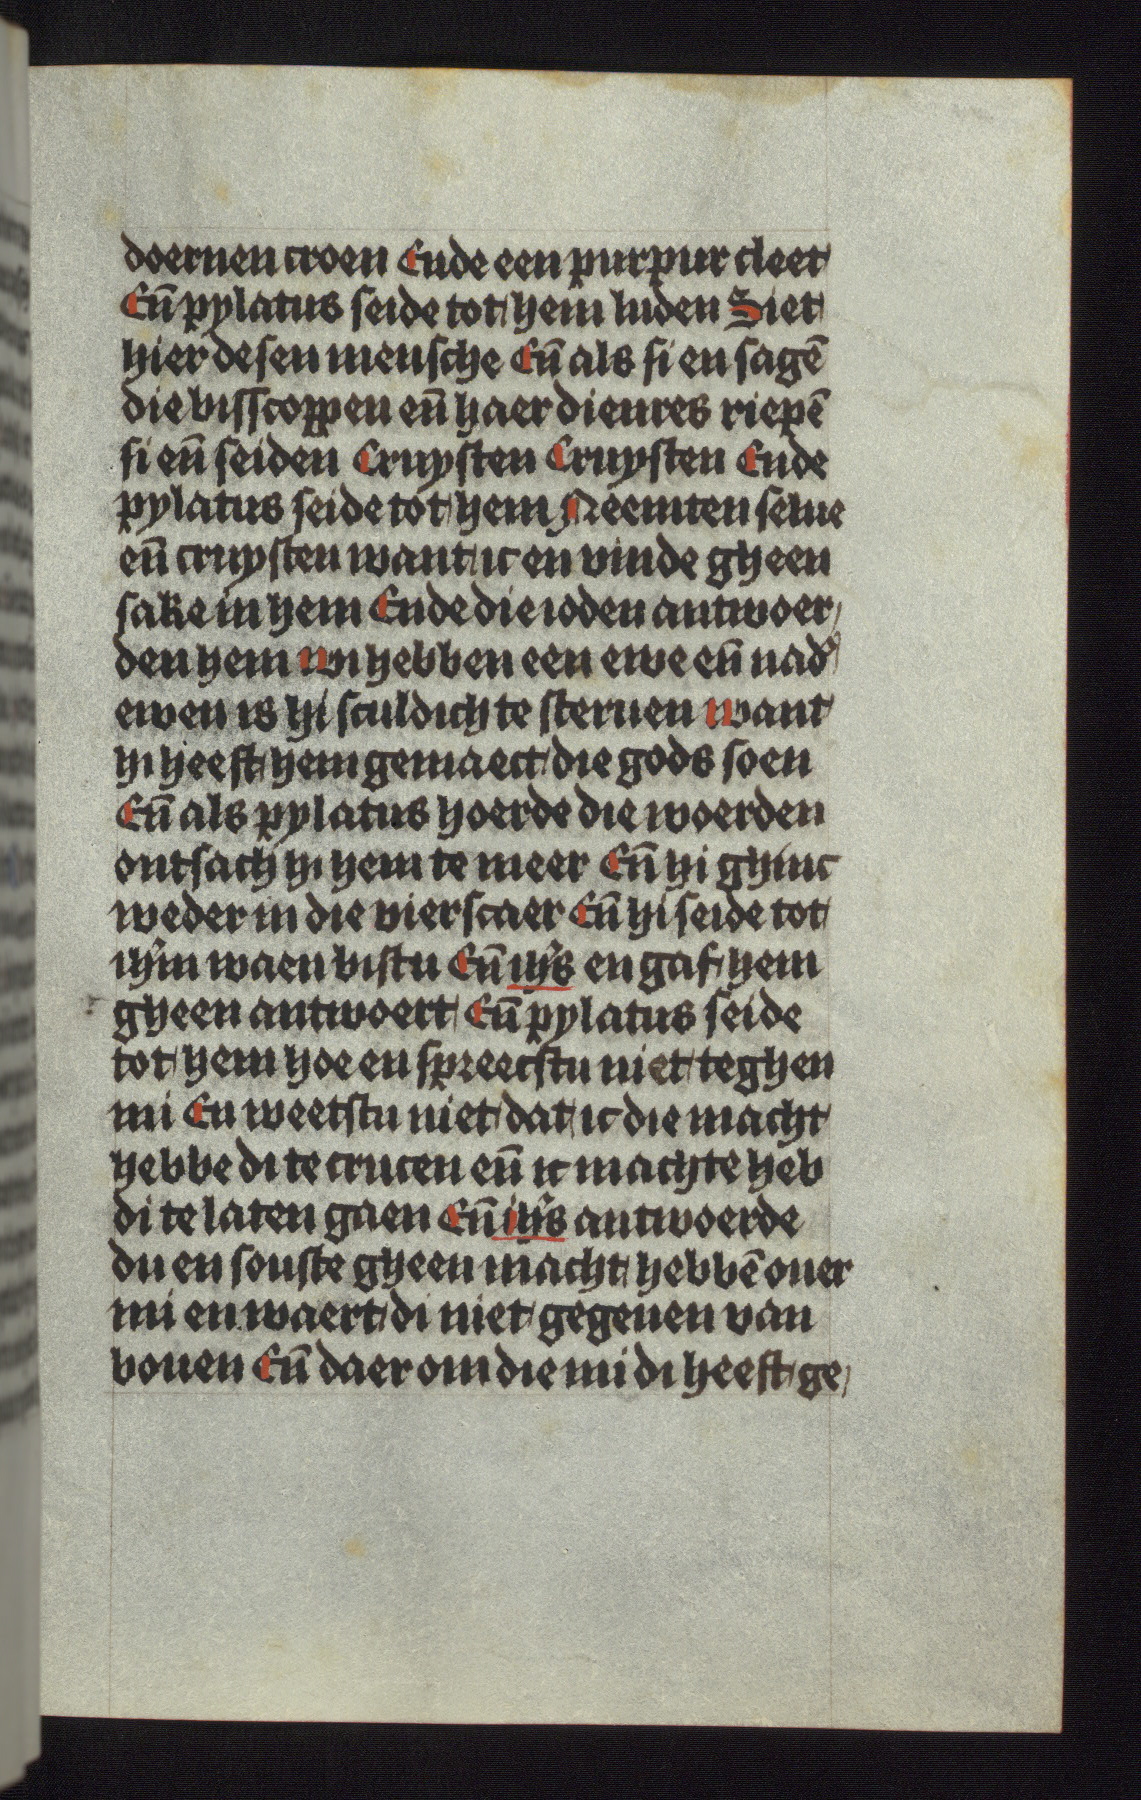 doernen croen Ende een purpur cleet
En̄ pylatus seide tot hem luden Siet
hier desen mensche En̄ als si en sagē
die bisscoppen en̄ haer dienres riepē
si en̄ seiden Cruysten Cruysten Ende
pylatus seide tot hem Neemten selue
en̄ cruysten want ic en vinde gheen
sake in hem Ende die ioden antwoer
den hem wi hebben een ewe en̄ nad'
ewen is hi sculdich te steruen want
hi heeft hem gemaect die gods soen
En̄ als pylatus hoerde die woerden
ontsach hi hem te meer En̄ hi ghinc
weder in die vierscaer En̄ hi seide tot
ihm̄ waen bistu En̄ ihs̄ en gaf hem
gheen antwoert En̄ pylatus seide
tot hem hoe en spreecstu niet teghen
mi En weetstu niet dat ic die macht
hebbe di te crucen en̄ ic machte heb
di te laten gaen En̄ ihs̄ antwoerde
du en souste gheen macht hebbē ouer
mi en waert di niet gegeuen van
bouen En̄ daer om die mi di heeft ge